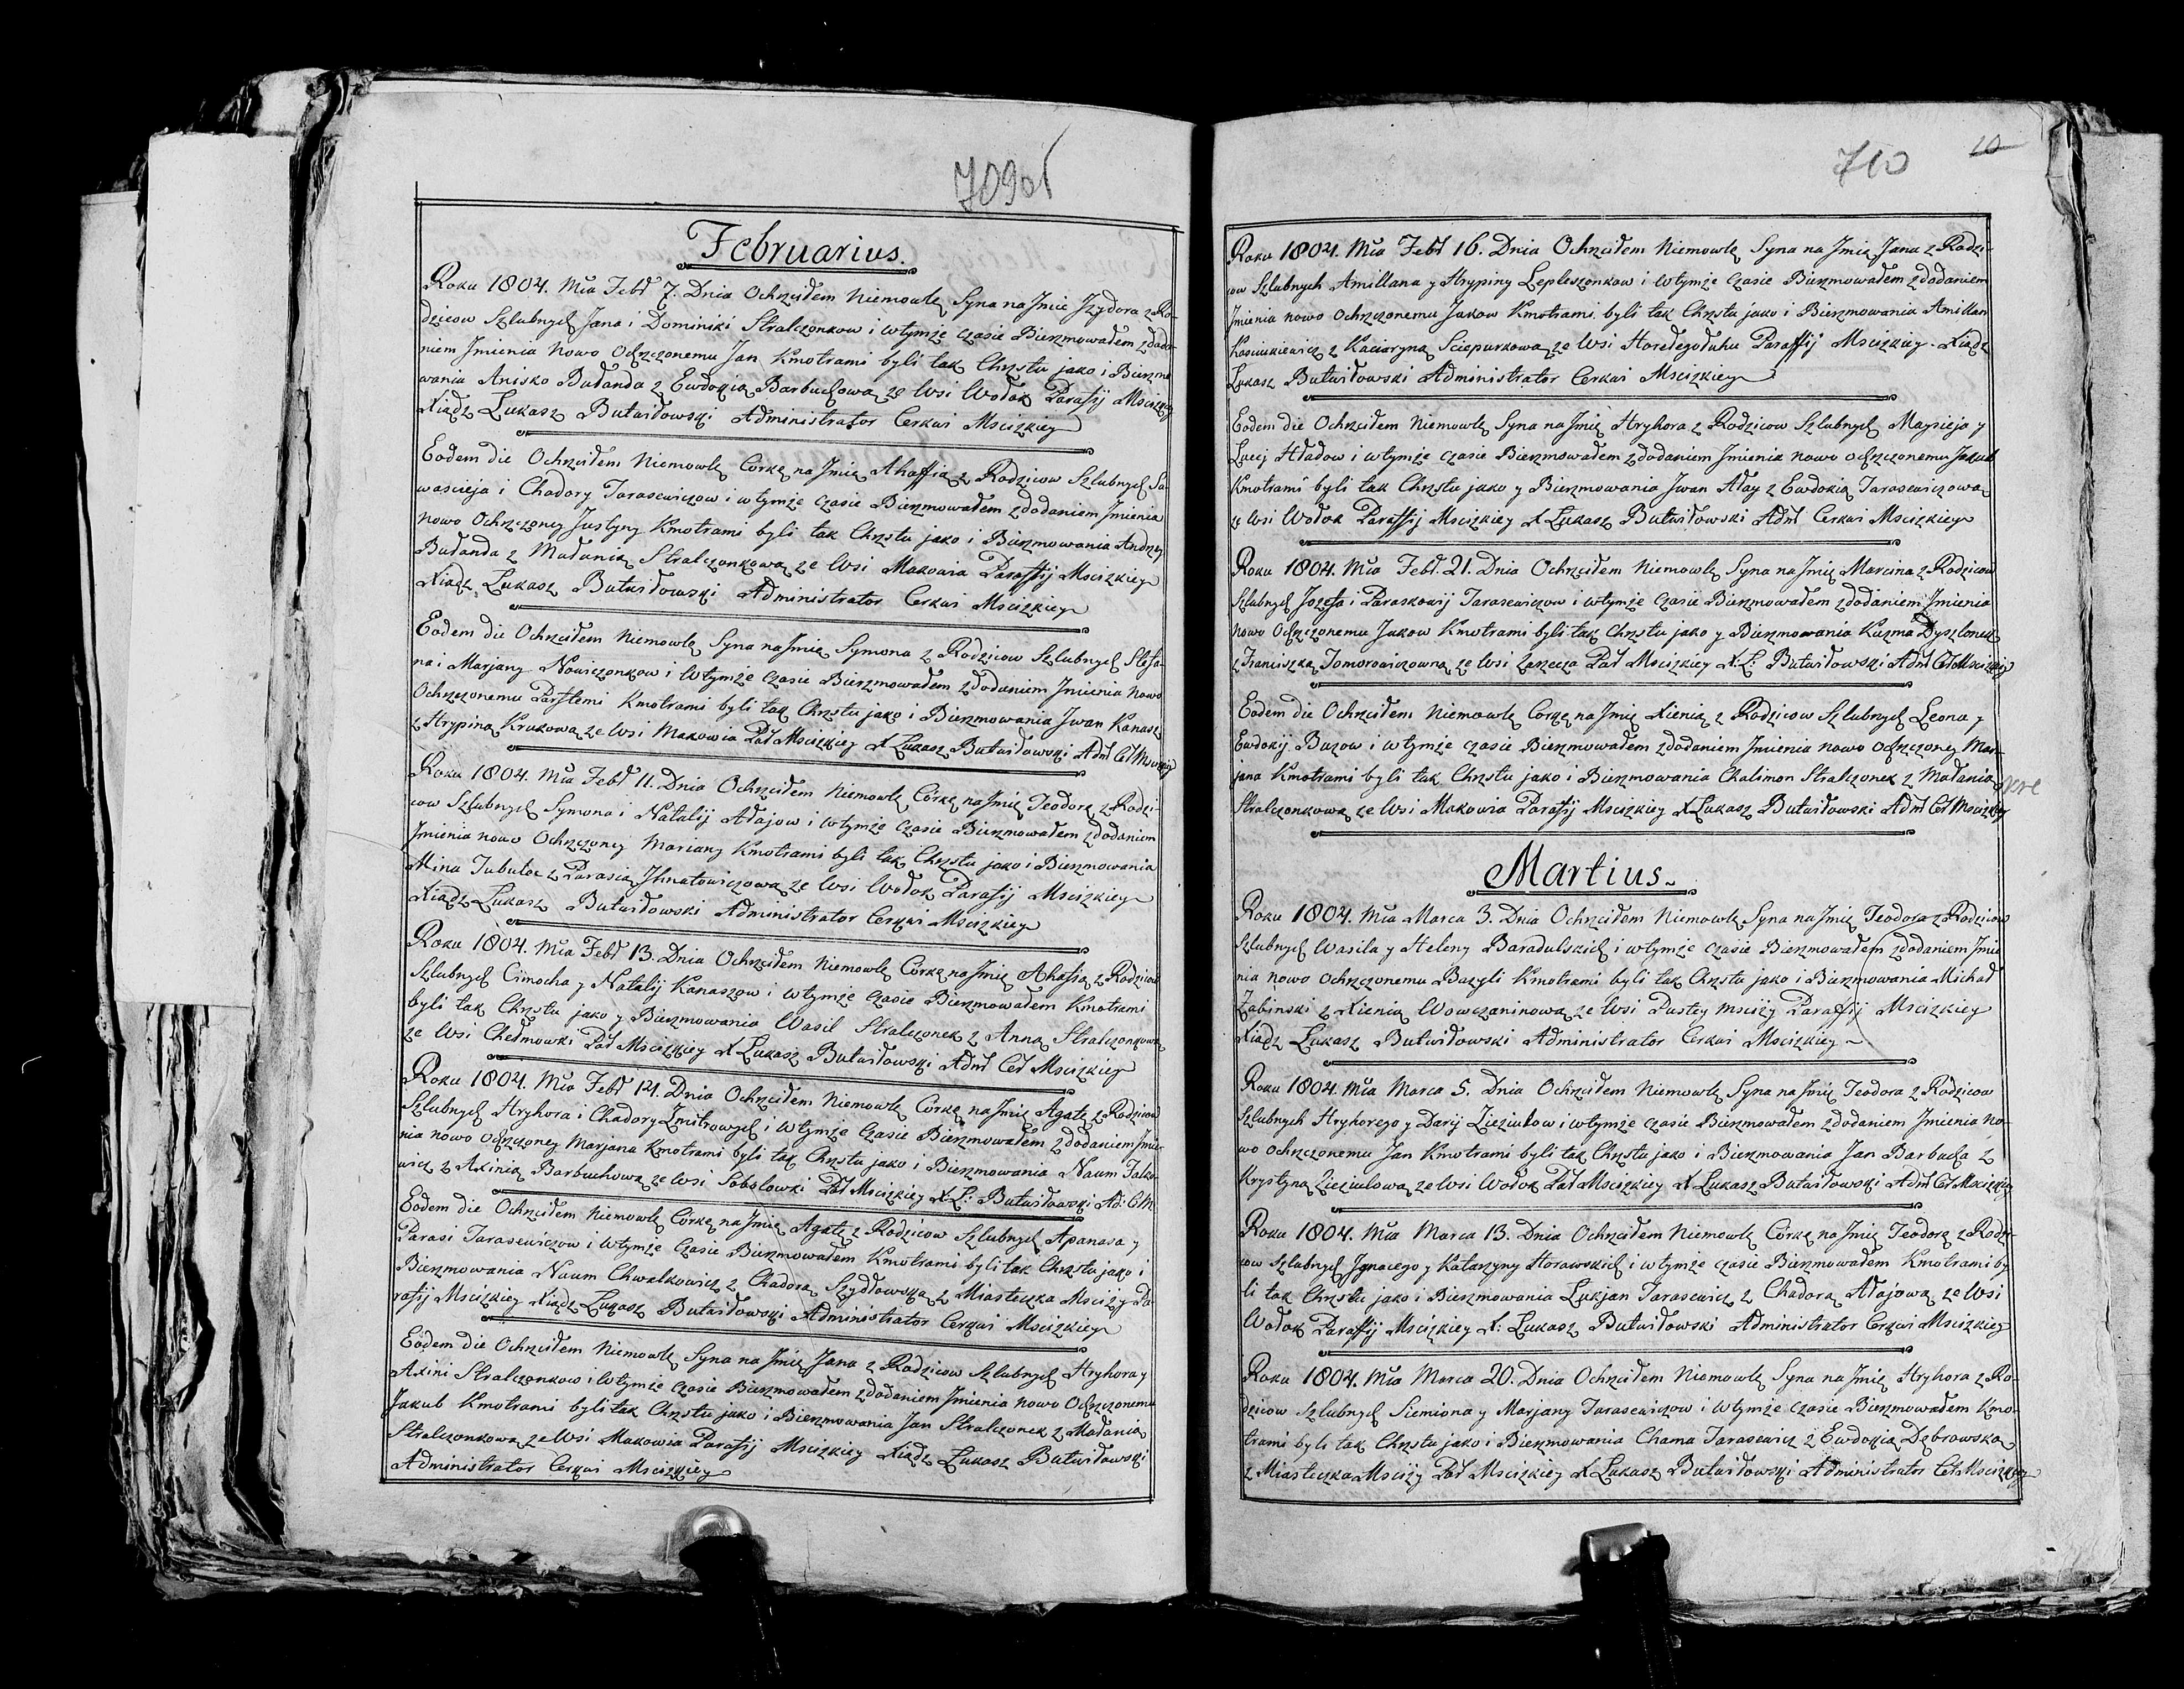 709об
Februarius.
Roku 1804. Mca Febr 7. Dnia Ochrzciłem Niemowlę Syna na Jmie Jzydora z Ro-
dzicow Szlubnych Jana i Dominiki Stralczonkow i wtymże czasie Bierzmowałem zdoda-
niem Jmienia Nowo Ochrzczonemu Jan Kmotrami byli tak Chrztu jako i Bierzmo
wania Anisko Bułanda z Ewdokią Barbuchową ze Wsi Wołok Parafij Mscizkiey
Xiądz Łukasz Butwiłowski Administrator Cerkwi Mscizkiey
Eodem die Ochrzciłem Niemowlę Córkę na Jmię Ahaffia z Rodzicow Szlubnych Sa-
wascieja i Chadory Tarasewiczow i wtymże czasie Bierzmowałem zdodaniem Jmienia
Nowo Ochrzczoney Justyny Kmotrami byli tak Chrztu jako i Bierzmowania Andrzy
Bułanda z Małanią Stralczonkową ze Wsi Makowia Paraffij Mscizkiey
Xiądz Łukasz Butwiłowski Administrator Cerkwi Mscizkiey
Eodem die Ochrzciłem Niemowlę Syna na Jmie Symona z Rodzicow Szlubnych Stefa-
na i Marjany Nowiczonkow i wtymże czasie Bierzmowałem zdodaniem Jmienia nowo
Ochrzczonemu Parftemi Kmotrami byli tak Chrztu jako i Bierzmowania Jwan Kanasz
z Hrypiną Krukową ze Wsi Makowia Par Mscizkiey X Łukasz Butwiłowski Adm Cer Mscizkiey
Roku 1804. Mca Febr 11. Dnia Ochrzciłem Niemowlę Córkę na Jmię Teodorę z Rodzi-
cow Szlubnych Symona i Natalij Ałajow i wtymże czasie Bierzmowałem zdodaniem
Jmienia nowo Ochrzczoney Marcany Kmotrami byli tak Chrztu jako i Bierzmowania
Mina Tubulec z Parasią Jhnatowiczową ze Wsi Wołok Parafij Mscizkiey
Xiądz Łukasz Butwiłowski Administrator Cerkwi Mscizkiey
Roku 1804. Mca Febr 13. Dnia Ochrzciłem Niemowlę Córkę na Jmię Ahafia z Rodzicow
Szlubnych Cimocha y Natalij Kanaszow i wtymże czasie Bierzmowałem Kmotrami
byli tak Chrztu jako y Bierzmowania Wasil Stralczonek z Anną Stralczonkową
ze Wsi Chełmowki Par Mscizkiey X Łukasz Butwiłowski Adm Cer Mscizkiey
Roku 1804. Mca Febr 14. Dnia Ochrzciłem Niemowlę Córkę na Jmię Agatę z Rodzicow
Szlubnych Hryhora i Chadory Zmitrowych i wtymże czasie Bierzmowałem zdodaniem Jmie-
nia nowo Ochrzczoney Marjana Kmotrami byli tak Chrztu jako i Bierzmowania Naum Falko-
wicz z Axinią Barbuchową ze Wsi Sobolowki Par Mscizkiey X. Ł: Butwiłowski Ad: C M
Eodem die Ochrzciłem Niemowlę Córkę na Jmię Agatę z Rodzicow Szlubnych Apanasa y
Parasi Tarasewiczow i wtymże czasie Bierzmowałem Kmotrami byli tak Chrztu jako i
Bierzmowania Naum Chwalkowicz z Chadorą Szydłowską z Miasteczka Mscizy Pa-
rafij Mscizkiey Xiądz Łukasz Butwiłowski Administrator Cerkwi Mscizkiey
Eodem die Ochrzciłem Niemowlę Syna na Jmię Jana z Rodzicow Szlubnych Hryhora y
Axini Stralczonkow i wtymże czasie Bierzmowałem zdodaniem Jmienia nowo Ochrzczonemu
Jakub Kmotrami byli tak Chrztu jako i Bierzmowania Jan Stralczonek z Małanią
Stralczonkową ze Wsi Makowia Parafij Mscizkiey Xiądz Łukasz Butwiłowski
Administrator Cerkwi Mscizkiey
710 10
Roku 1804. Mca Febr 16. Dnia Ochrzciłem Niemowlę Syna na Jmię Jana z Rodzi-
cow Szlubnych Amilłana y Hrypiny Lepleszonkow i wtymże czasie Bierzmowałem zdodaniem
Jmienia nowo Ochrzczonemu Jakow Kmotrami byli tak Chrztu jako i Bierzmowania Amiłłan
Kasciukiewicz z Kaciaryną Sciepurkową ze Wsi Horełegołuhu Paraffij Mscizkiey. Xiądz
Łukasz Butwiłowski Administrator Cerkwi Mscizkiey
Eodem die Ochrzciłem Niemowlę Syna na Jmię Hryhora z Rodzicow Szlubnych Maysieja y
Lucij Hładow i wtymże czasie Bierzmowałem zdodaniem Jmienia nowo ochrzczonemu Jakub
Kmotrami byli tak Chrztu jako y Bierzmowania Jwan Ałay z Ewdokią Tarasewiczową
ze Wsi Wołok Paraffij Mscizkiey X Łukasz Butwiłowski Adm Cerkwi Mscizkiey
Roku 1804. Mca Febr. 21. Dnia Ochrzciłem Niemowlę Syna na Jmię Marcina z Rodzicow
Szlubnych Jozefa i Paraskowij Tarasewiczow i wtymże czasie Bierzmowałem zdodaniem Jmienia
nowo Ochrzczonemu Jakow Kmotrami byli tak Chrztu jako y Bierzmowania Kuzma Dyszlonek
z Franciszką Tomorowiczowną ze Wsi Zarzecza Par Mscizkiey X. Ł: Butwiłowski Adm Cer Mscizkiey
Eodem die Ochrzciłem Niemowlę Corkę na Jmię Xienią z Rodzicow Szlubnych Leona y
Ewdokij Buzow i wtymże czasie Bierzmowałem zdodaniem Jmienia nowo Ochrzczoney Mar-
jana Kmotrami byli tak Chrztu jako i Bierzmowania Chalimon Stralczonek z Małanią
Stralczonkową ze Wsi Makowia Parafij Mscizkiey X Łukasz Butwiłowski Adm Cer Mscizkiey
Martius.
Roku 1804. Mca Marca 3. Dnia Ochrzciłem Niemowlę Syna na Jmię Teodora z Rodzicow
Szlubnych Wasila y Heleny Baradulskich i wtymże czasie Bierzmowałem zdodaniem Jmie
nia nowo Ochrzczonemu Bazyli Kmotrami byli tak Chrztu jako i Bierzmowania Michał
Żabinski z Xienią Wowczaninową ze Wsi Pustey Mscizy Paraffij Mscizkiey
Xiądz Łukasz Butwiłowski Administrator Cerkwi Mscizkiey
Roku 1804. Mca Marca 5. Dnia Ochrzciłem Niemowlę Syna na Jmię Teodora z Rodzicow
Szlubnych Hryhorego y Darij Zieziulow i wtymże czasie Bierzmowałem zdodaniem Jmienia No-
wo Ochrzczonemu Jan Kmotrami byli tak Chrztu jako i Bierzmowania Jan Barbucha z
Krystyną Zieziulową ze Wsi Wołok Par Mscizkiey X Łukasz Butwiłowski Adm Cer Mscizkiey
Roku 1804. Mca Marca 13. Dnia Ochrzciłem Niemowlę Córkę na Jmię Teodorę z Rodzi-
cow Szlubnych Jgnacego y Katarzyny Horawskich i wtymże czasie Bierzmowałem Kmotrami by
li tak Chrztu jako i Bierzmowania Lukjan Tarasewicz z Chadorą Ałajową ze Wsi
Wołok Paraffij Mscizkiey X. Łukasz Butwiłowski Administrator Cerkwi Mscizkiey
Roku 1804. Mca Marca 20. Dnia Ochrzciłem Niemowlę Syna na Jmię Hryhora z Ro-
dzicow Szlubnych Siemiona y Marjany Tarasewiczow i wtymże czasie Bierzmowałem Kmo-
trami byli tak Chrztu jako i Bierzmowania Chama Tarasewicz z Ewdokią Dąbrowską
z Miasteczka Mscizy Par Mscizkiey X Łukasz Butwiłowski Administrator Cer Mscizkiey